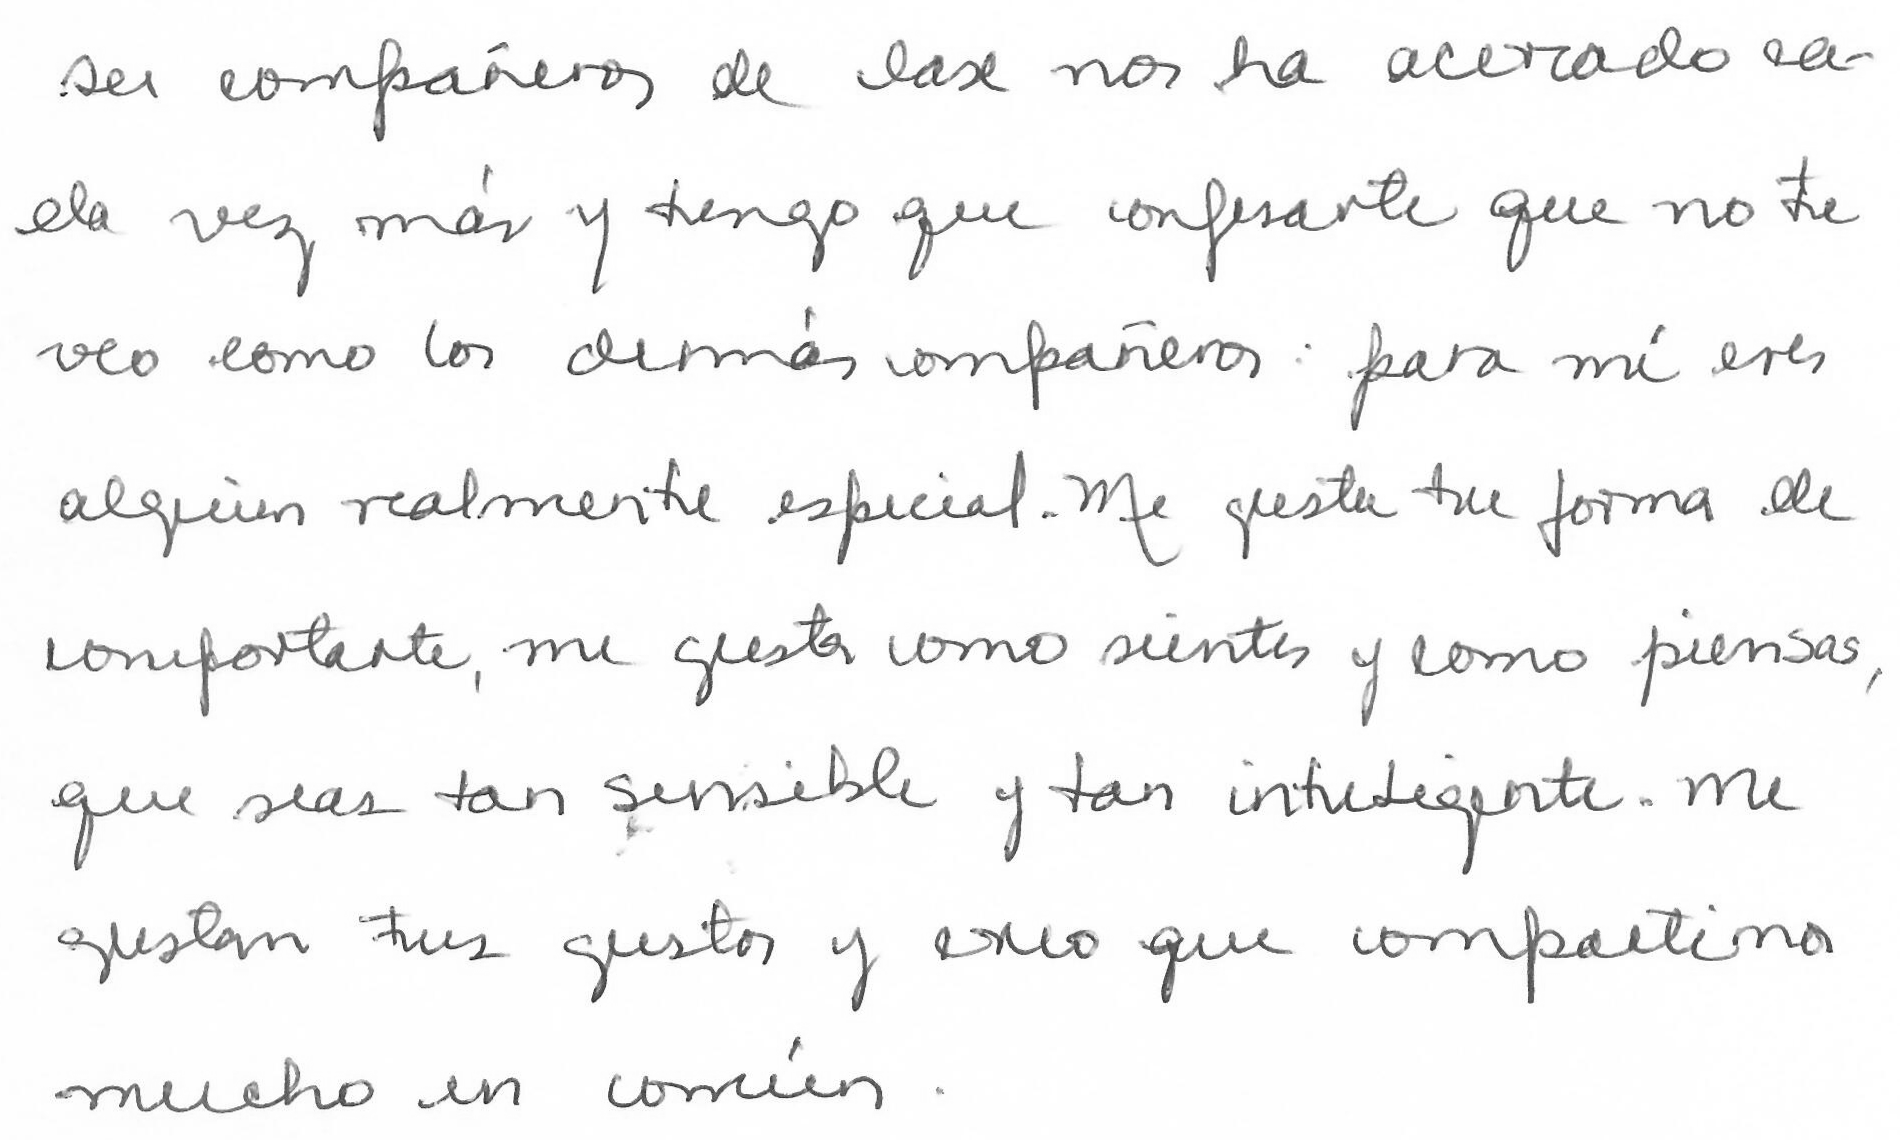 ser compañeros de clase nos ha acercado ca-
da vez más y tengo que confesarte que no te
veo como los demás compañeros: para mí eres
alguien realmente especial. Me gusta tu forma de
comportarte, me gusta como sientes y como piensas,
que seas tan sensible y tan inteligente. Me
gustan tus gustos y creo que compartimos
mucho en común.